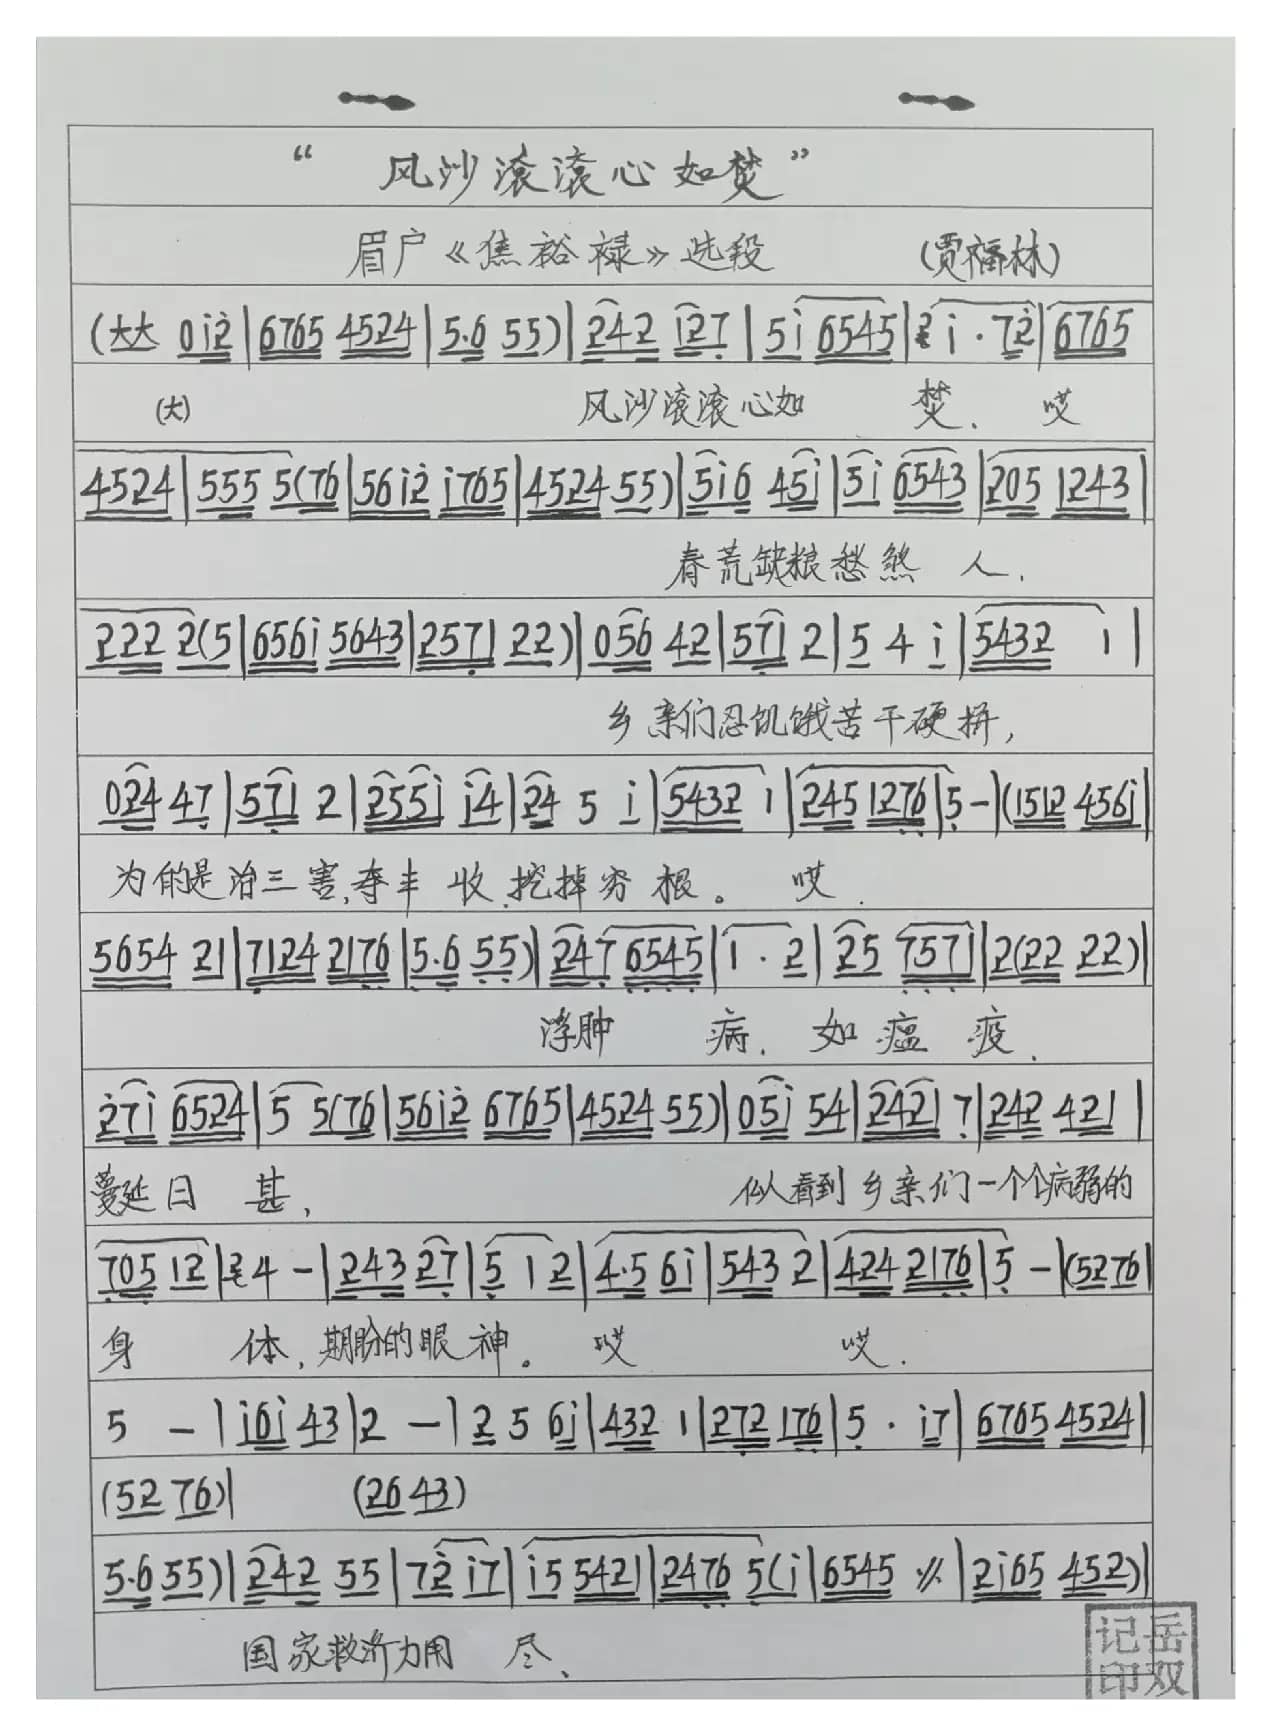 “风沙滚滚心如焚”
眉户《焦裕禄》选段 (贾福林)
(大大 0i2̇|6765 4524|5·6 55)|242 i27|5i 6545|i·72̇|6765
(大) 风沙滚滚心如 焚、哎
4524|555 5(76|56i2̇ i765|4524 55)|5i6 45i|5i 6543|205 1243|
春荒缺粮愁煞 人、
222 2(5|656i 5643|2571 22)|056 42|571 2|5 4 i|5432 1|
乡亲们忍饥饿苦干硬拼,
024 47|571 2|255i i4|24 5 i|5432 1|245 1276|5-|(1512 456i|
为的是治三害,夺丰 收、挖掉穷 根。 哎、
5654 21|7124 2176|5·6 55)|247 6545|1·2|25 7571|2(22 22)|
浮肿 病、如 瘟 疫、
2̇7i 6524|5 5(76|56i2̇ 6765|4524 55)|05i 54|2421 7|242 421|
蔓延日 甚, 似看到乡亲们一个个病弱的
705 12|4 -|243 27|5 1 2|4·5 6i|543 2|424 2176|5 -|(52 76|
身 体,期盼的眼 神。 哎 哎、
5 -|i6i 43|2 -|2 5 6i|432 1|272 176|5 · i7|6765 4524|
(52 76)| (26 43)
5·6 55)|242 55|72̇ i7|i5 5421|2476 5(i|6545 〃|2i65 452)|
国家救济力用 尽、
岳双
记印